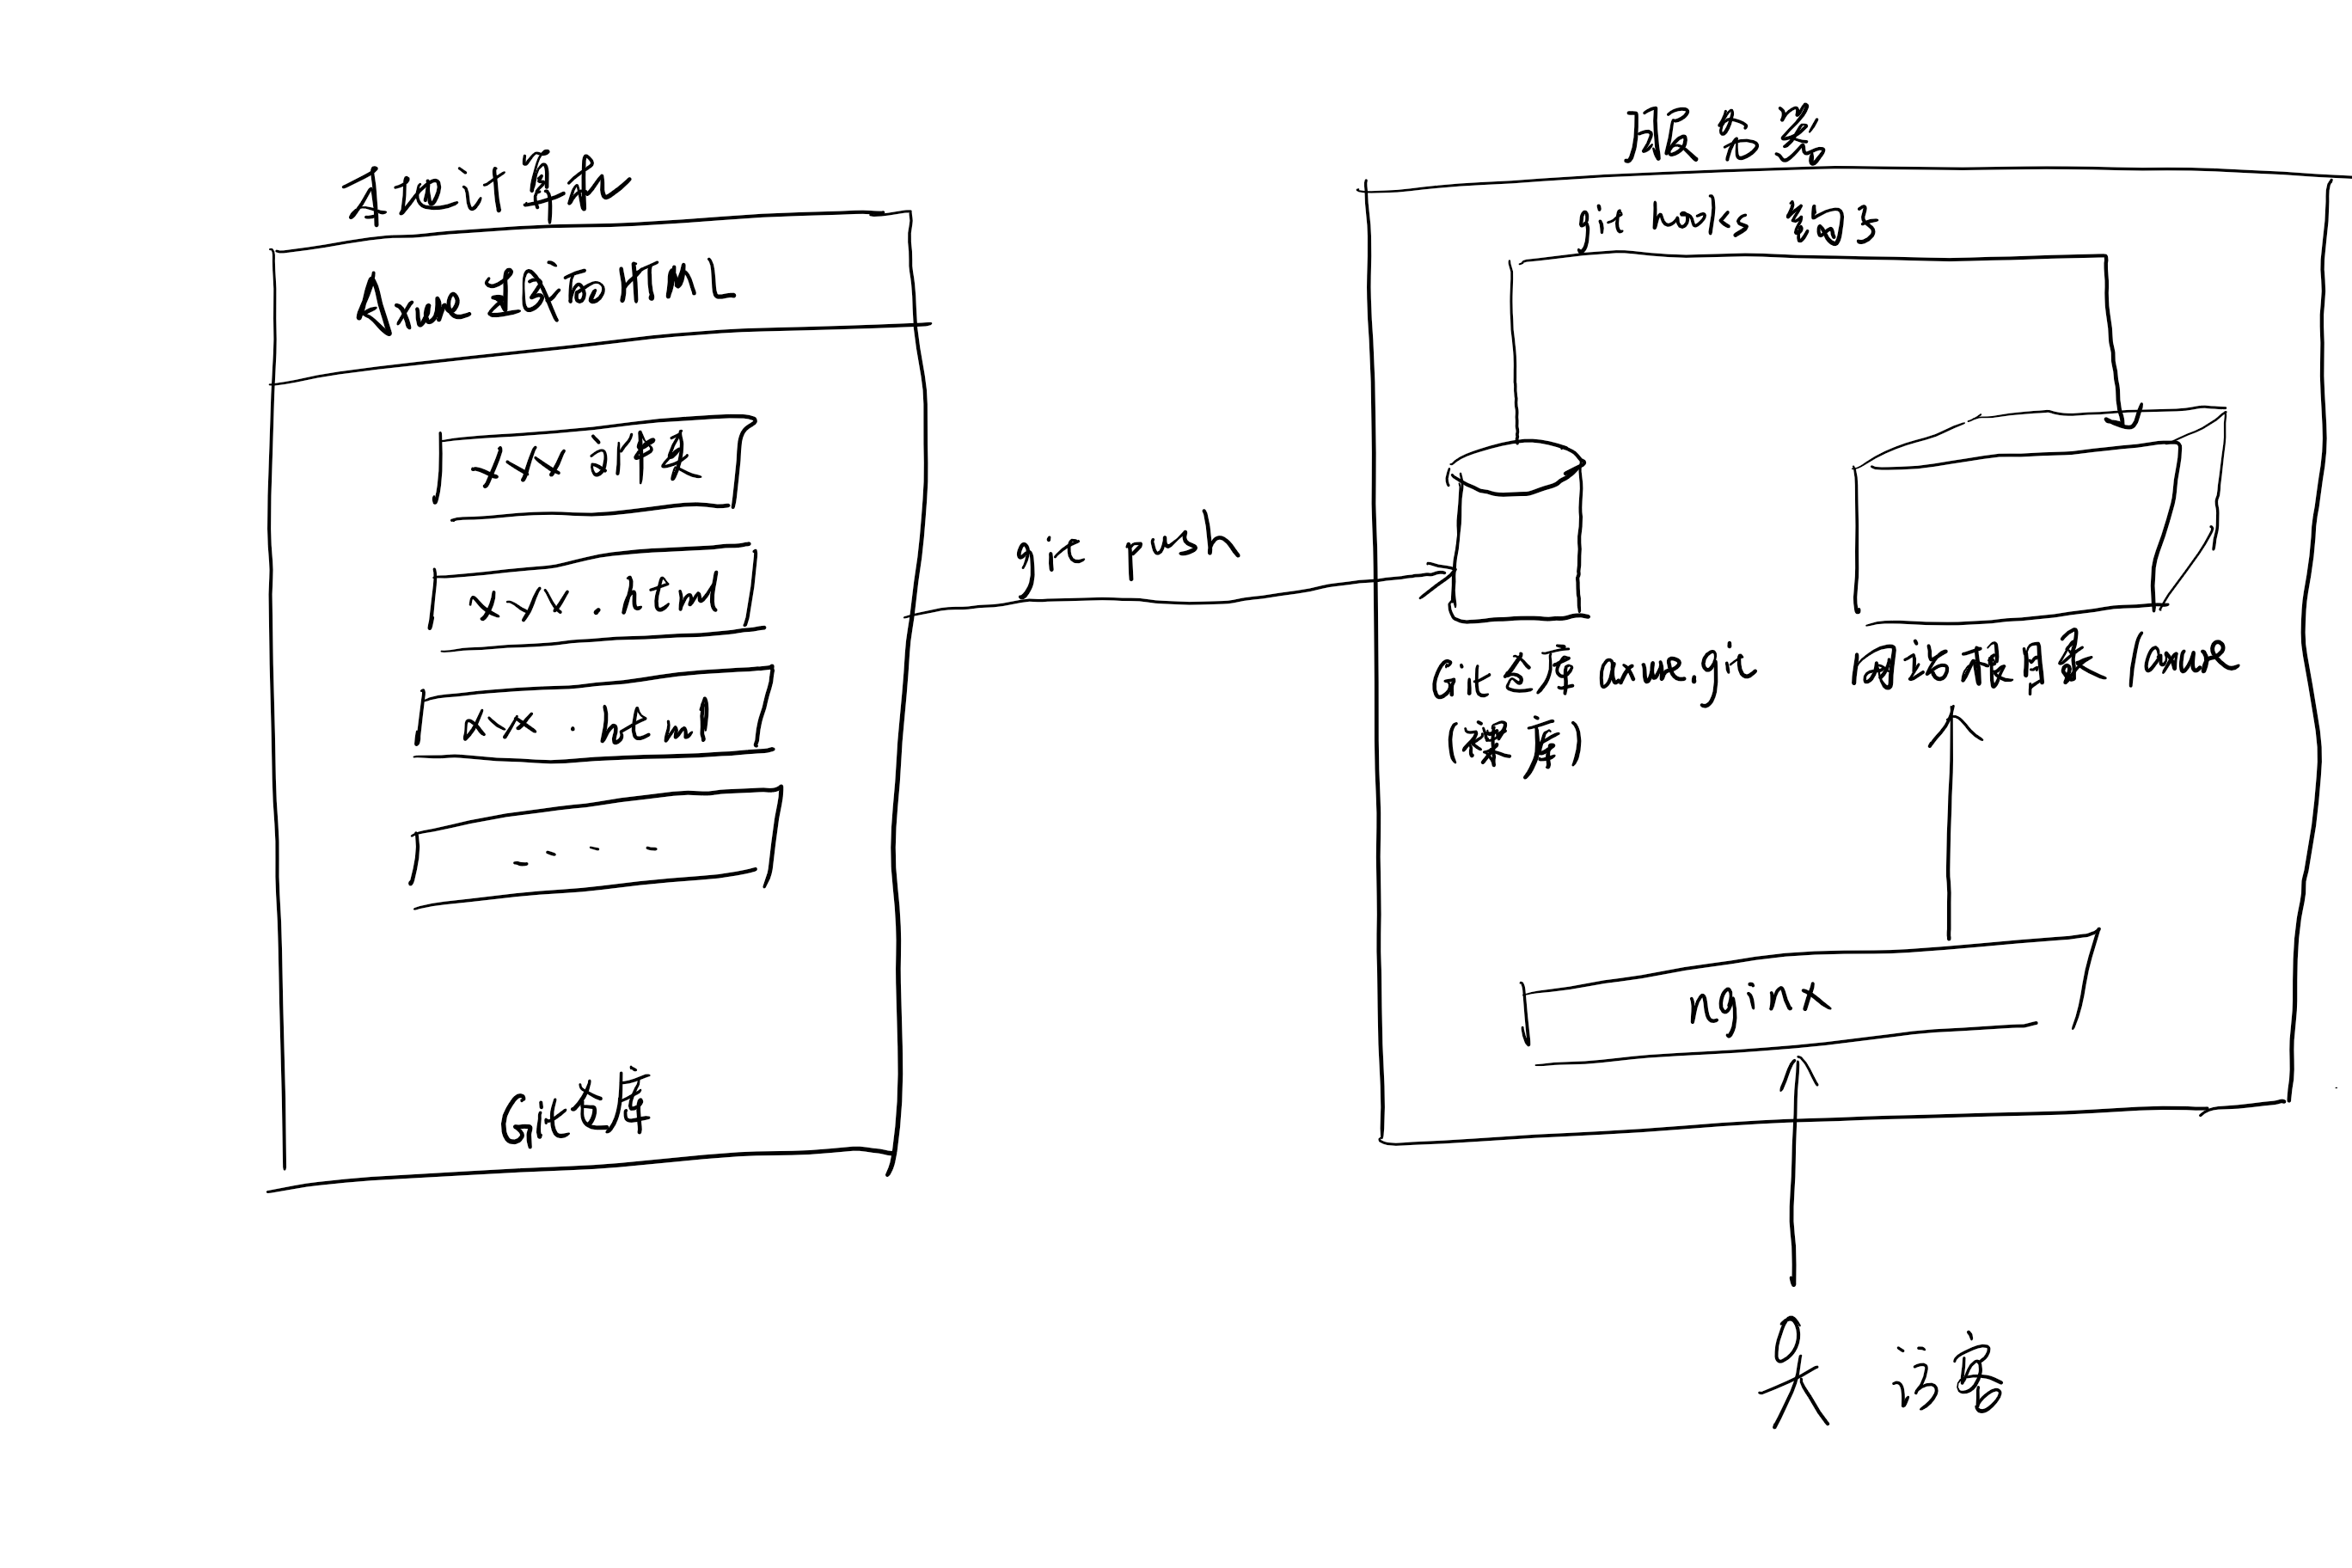 本地计算机
Axure 生成的 HTML
xxx 文件夹
xxx . html
xxx . html
....
Git仓库
git push
服务器
git hooks 钩子
Git仓库 axure.git
(裸库)
网站根目录 /axure
nginx
访客